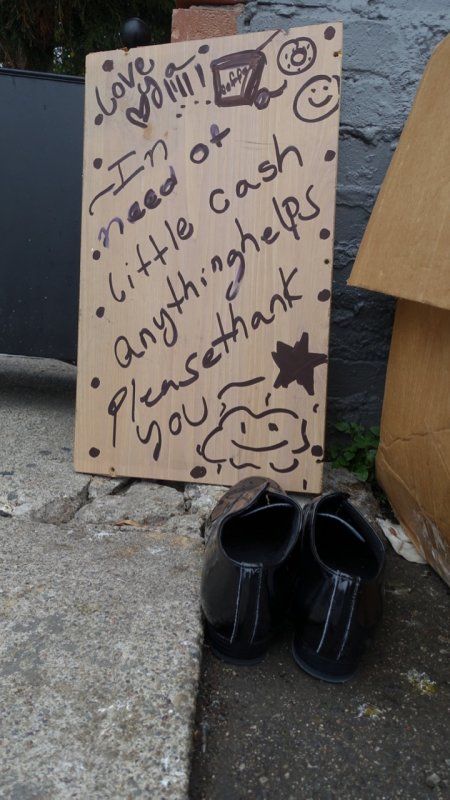 Love
ya!!!!
coffee
In
need of
little cash
anything helps
Please thank
you